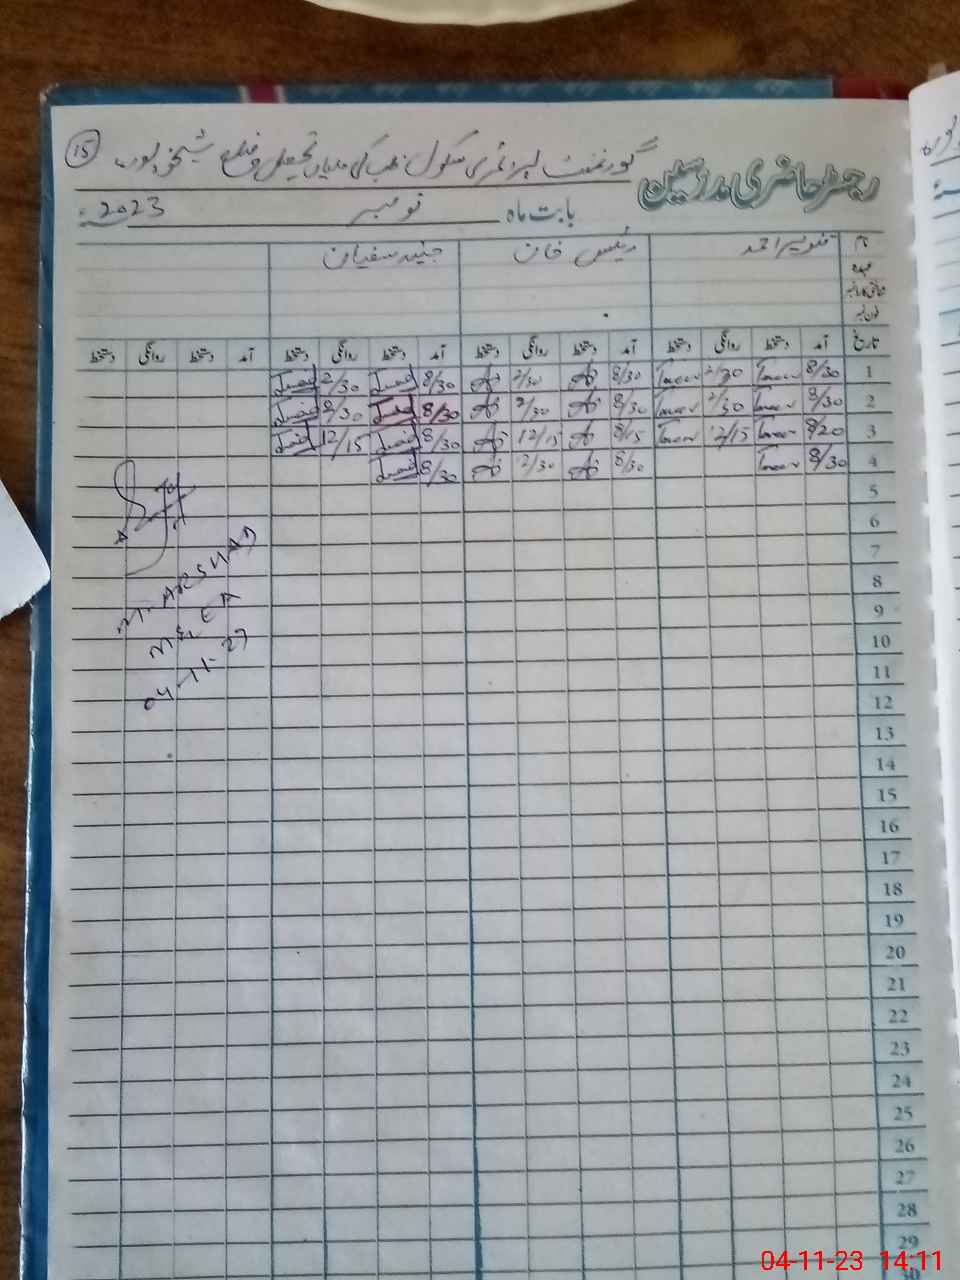 15 گورنمنٹ پرائمری سکول تحصیل و ضلع شیخوپورہ
رجسٹر حاضری مدرسین
بابت ماہ نومبر 2023ء
نام تنویر احمد رئیس خان جنید سفیان
عہدہ
تاریخ آمد دستخط روانگی دستخط آمد دستخط روانگی دستخط آمد دستخط روانگی دستخط آمد دستخط روانگی دستخط
1 8/30 2/30 8/30 2/30 8/30 2/30
2 8/30 2/30 8/30 2/30 8/30 2/30
3 8/20 12/15 8/15 12/15 8/30 12/15
4 8/30 8/30 12/30 8/30
5
6
7
8
9
10
11
12
13
14
15
16
17
18
19
20
21
22
23
24
25
26
27
28
29
30
M. ARSHAD
MEA
04-11-23
04-11-23 14:11